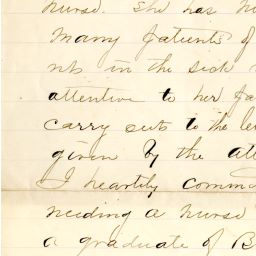 nurse. She has
Many patients of
in the sick
attentive to her
carry out to the
given by the
I heartily
needing a nurse
a graduate of B